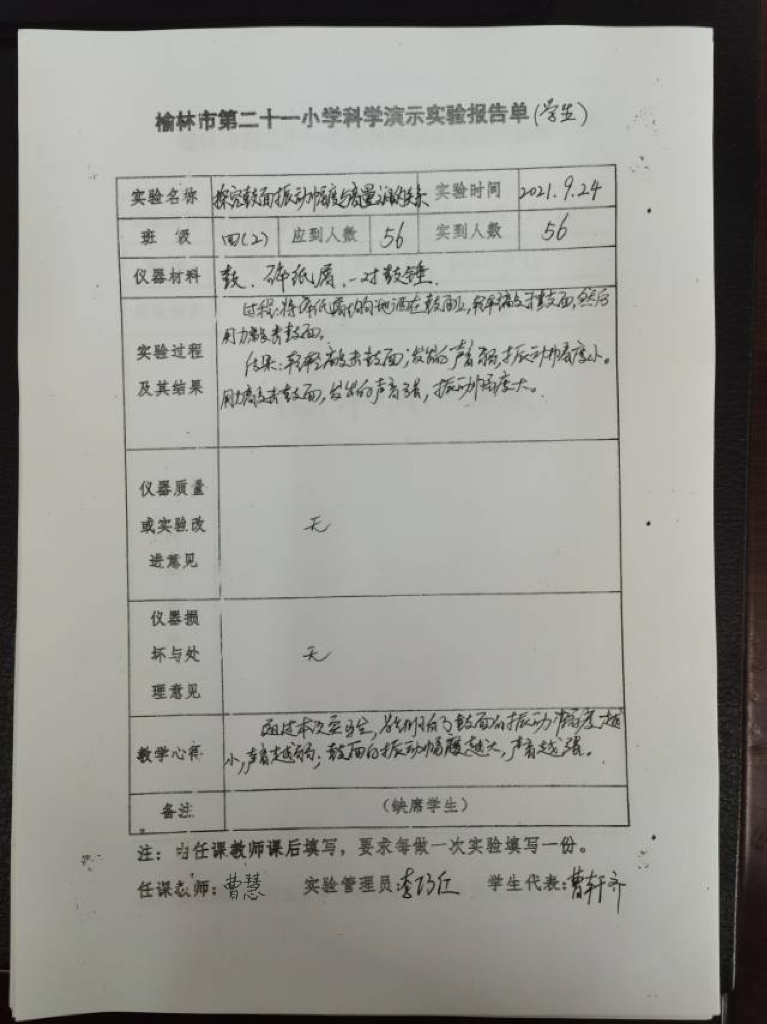 榆林市第二十一小学科学演示实验报告单(学生)
实验名称 探究鼓面振动幅度与音量的关系 实验时间 2021.9.24
班 级 四(2) 应到人数 56 实到人数 56
仪器材料 鼓、碎纸屑、一对鼓锤.
实验过程
及其结果
过程:将碎纸屑均匀地洒在鼓面上,轻轻敲击鼓面,然后
用力敲击鼓面。
结果:轻轻敲击鼓面,发出的声音弱,振动幅度小。
用力敲击鼓面,发出的声音强,振动幅度大。
仪器质量
或实验改
进意见
无
仪器损
坏与处
理意见
无
教学心得
通过本次实验,我们明白了鼓面的振动幅度越
小,声音越弱;鼓面的振动幅度越大,声音越强。
备注 (缺席学生)
注:由任课教师课后填写,要求每做一次实验填写一份。
任课教师:曹慧 实验管理员:李巧红 学生代表:曹轩齐